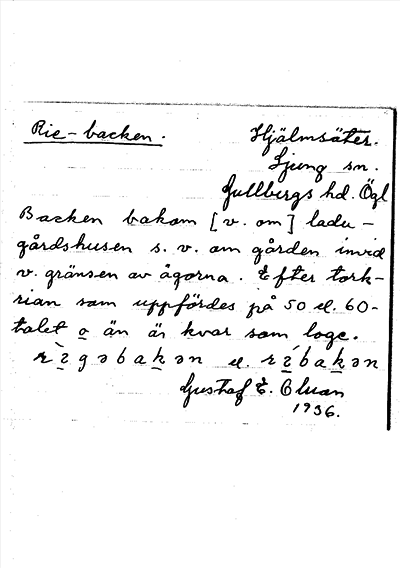 Rie-backen.
Hjälmsäter.
Ljung sn.
Gullbergs hd. Ögl
Backen bakom [v. om] ladu-
gårdshusen s. v. om gården invid
v. gränsen av ägorna. Efter tork-
rian som uppfördes på 50 el. 60-
talet o än är kvar som loge.
rìgəbakən el. ríbakən
Gustaf E.
1936.